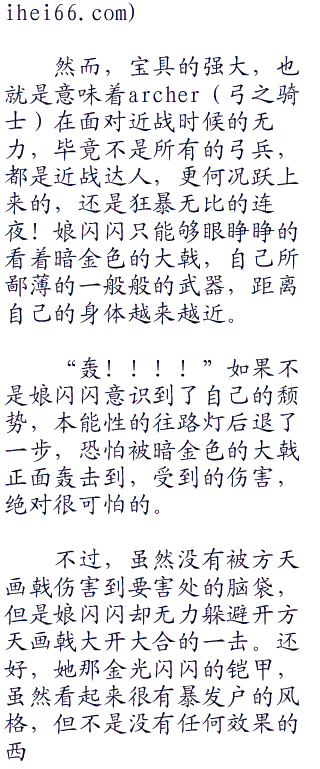 ihei66.com)
然而，宝具的强大，也
就是意味着archer（弓之骑
士）在面对近战时候的无
力，毕竟不是所有的弓兵，
都是近战达人，更何况跃上
来的，还是狂暴无比的连
夜！娘闪闪只能够眼睁睁的
看着暗金色的大戟，自己所
鄙薄的一般般的武器，距离
自己的身体越来越近。
“轰！！！！”如果不
是娘闪闪意识到了自己的颓
势，本能性的往路灯后退了
一步，恐怕被暗金色的大戟
正面轰击到，受到的伤害，
绝对很可怕的。
不过，虽然没有被方天
画戟伤害到要害处的脑袋，
但是娘闪闪却无力躲避开方
天画戟大开大合的一击。还
好，她那金光闪闪的铠甲，
虽然看起来很有暴发户的风
格，但不是没有任何效果的
西